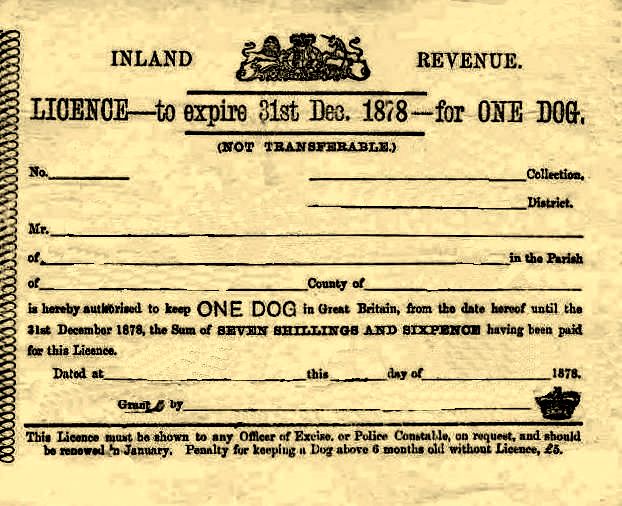 INLAND REVENUE.
LICENCE—to expire 31st Dec. 1878—for ONE DOG.
(NOT TRANSFERABLE.)
No. Collection.
District.
Mr.
of in the Parish
of County of
is hereby authorised to keep ONE DOG in Great Britain, from the date hereof until the
31st December 1878, the Sum of SEVEN SHILLINGS AND SIXPENCE having been paid
for this Licence.
Dated at this day of 1878.
Granted by
This Licence must be shown to any Officer of Excise, or Police Constable, on request, and should
be renewed in January. Penalty for keeping a Dog above 6 months old without Licence, £5.